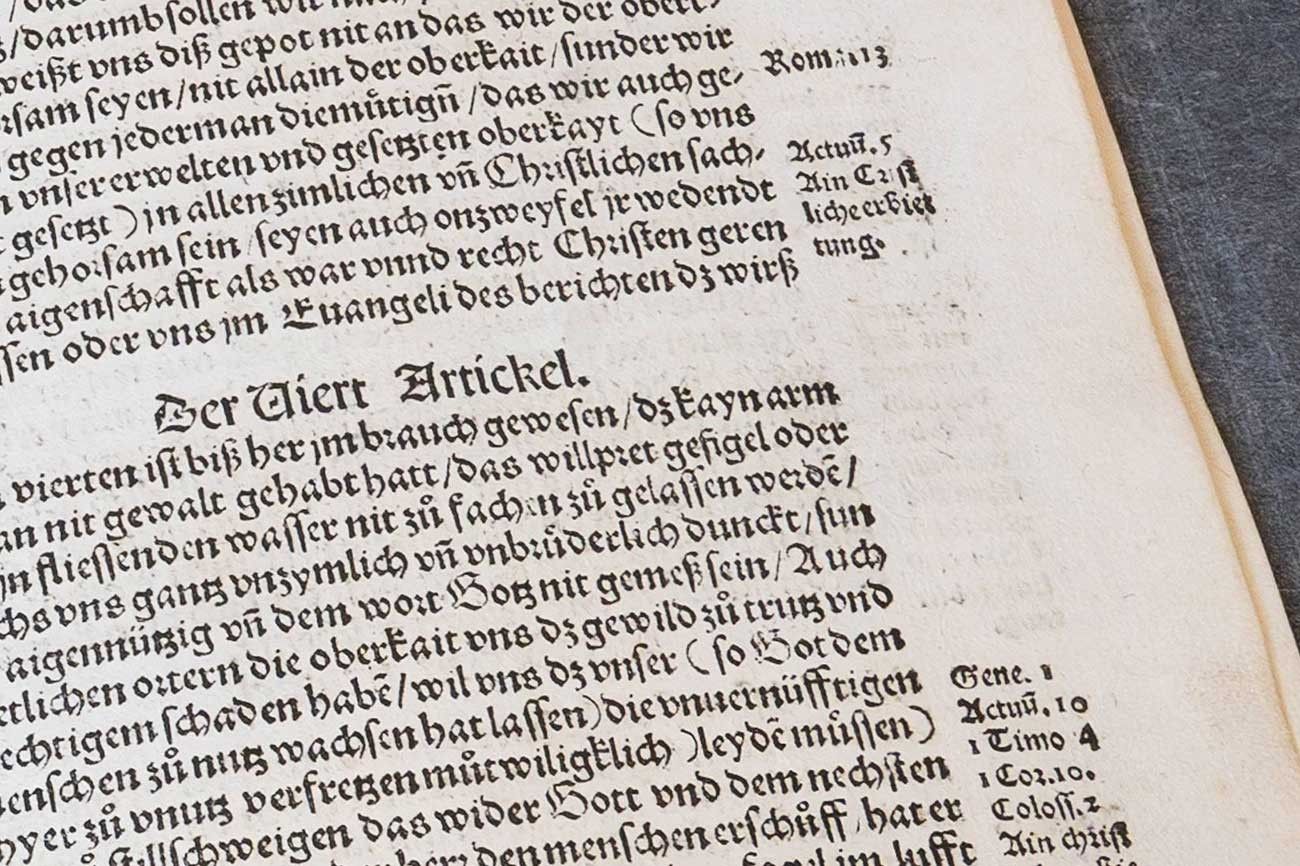 darumb sollen wir
weißt vns diß gepot nit an das wir der obert/
sam seyen/nit allain der oberkait/sunder wir
Rom. 13
gegen jederman diemuͤtigñ/das wir auch ge⸗
vnser erwelten vnd gesetzten oberkayt (so vns
Actuū. 5
gesetzt) jn allen zimlichen vñ Christlichen sach⸗
Ain Crist
gehorsam sein/seyen auch onzweyfel jr wedendt
liche erbiet
aigenschafft als war vnnd recht Christen geren
tung.
ssen oder vns jm Euangeli des berichten dz wirß
Der Viert Artickel.
vierten ist biß her jm brauch gewesen/dz kayn arm
an nit gewalt gehabt hatt/das willpret gefigel oder
jn fliessenden wasser nit zuͦ fachen zuͦ gelassen werdē/
chs vns gantz vnzymlich vñ vnbruͤderlich dunckt/sun
aigennützig vñ dem wort Gotz nit gemeß sein/Auch
etlichen ortern die oberkait vns dz gewild zuͦ trutz vnd
echtigem schaden habē/wil vns dz vnser (so Got dem
enschen zuͦ nutz wachsen hat lassen) die vnuernüfftigen
Gene. 1
yer zuͦ vnutz verfretzen muͦtwiligklich) leydē muͤssen)
Actuū. 10
stillschweigen das wider Gott vnd dem nechsten
1 Timo 4
den menschen erschuͦff/hat er
1 Cor. 10.
Coloss. 2
im lufft
Ain christ